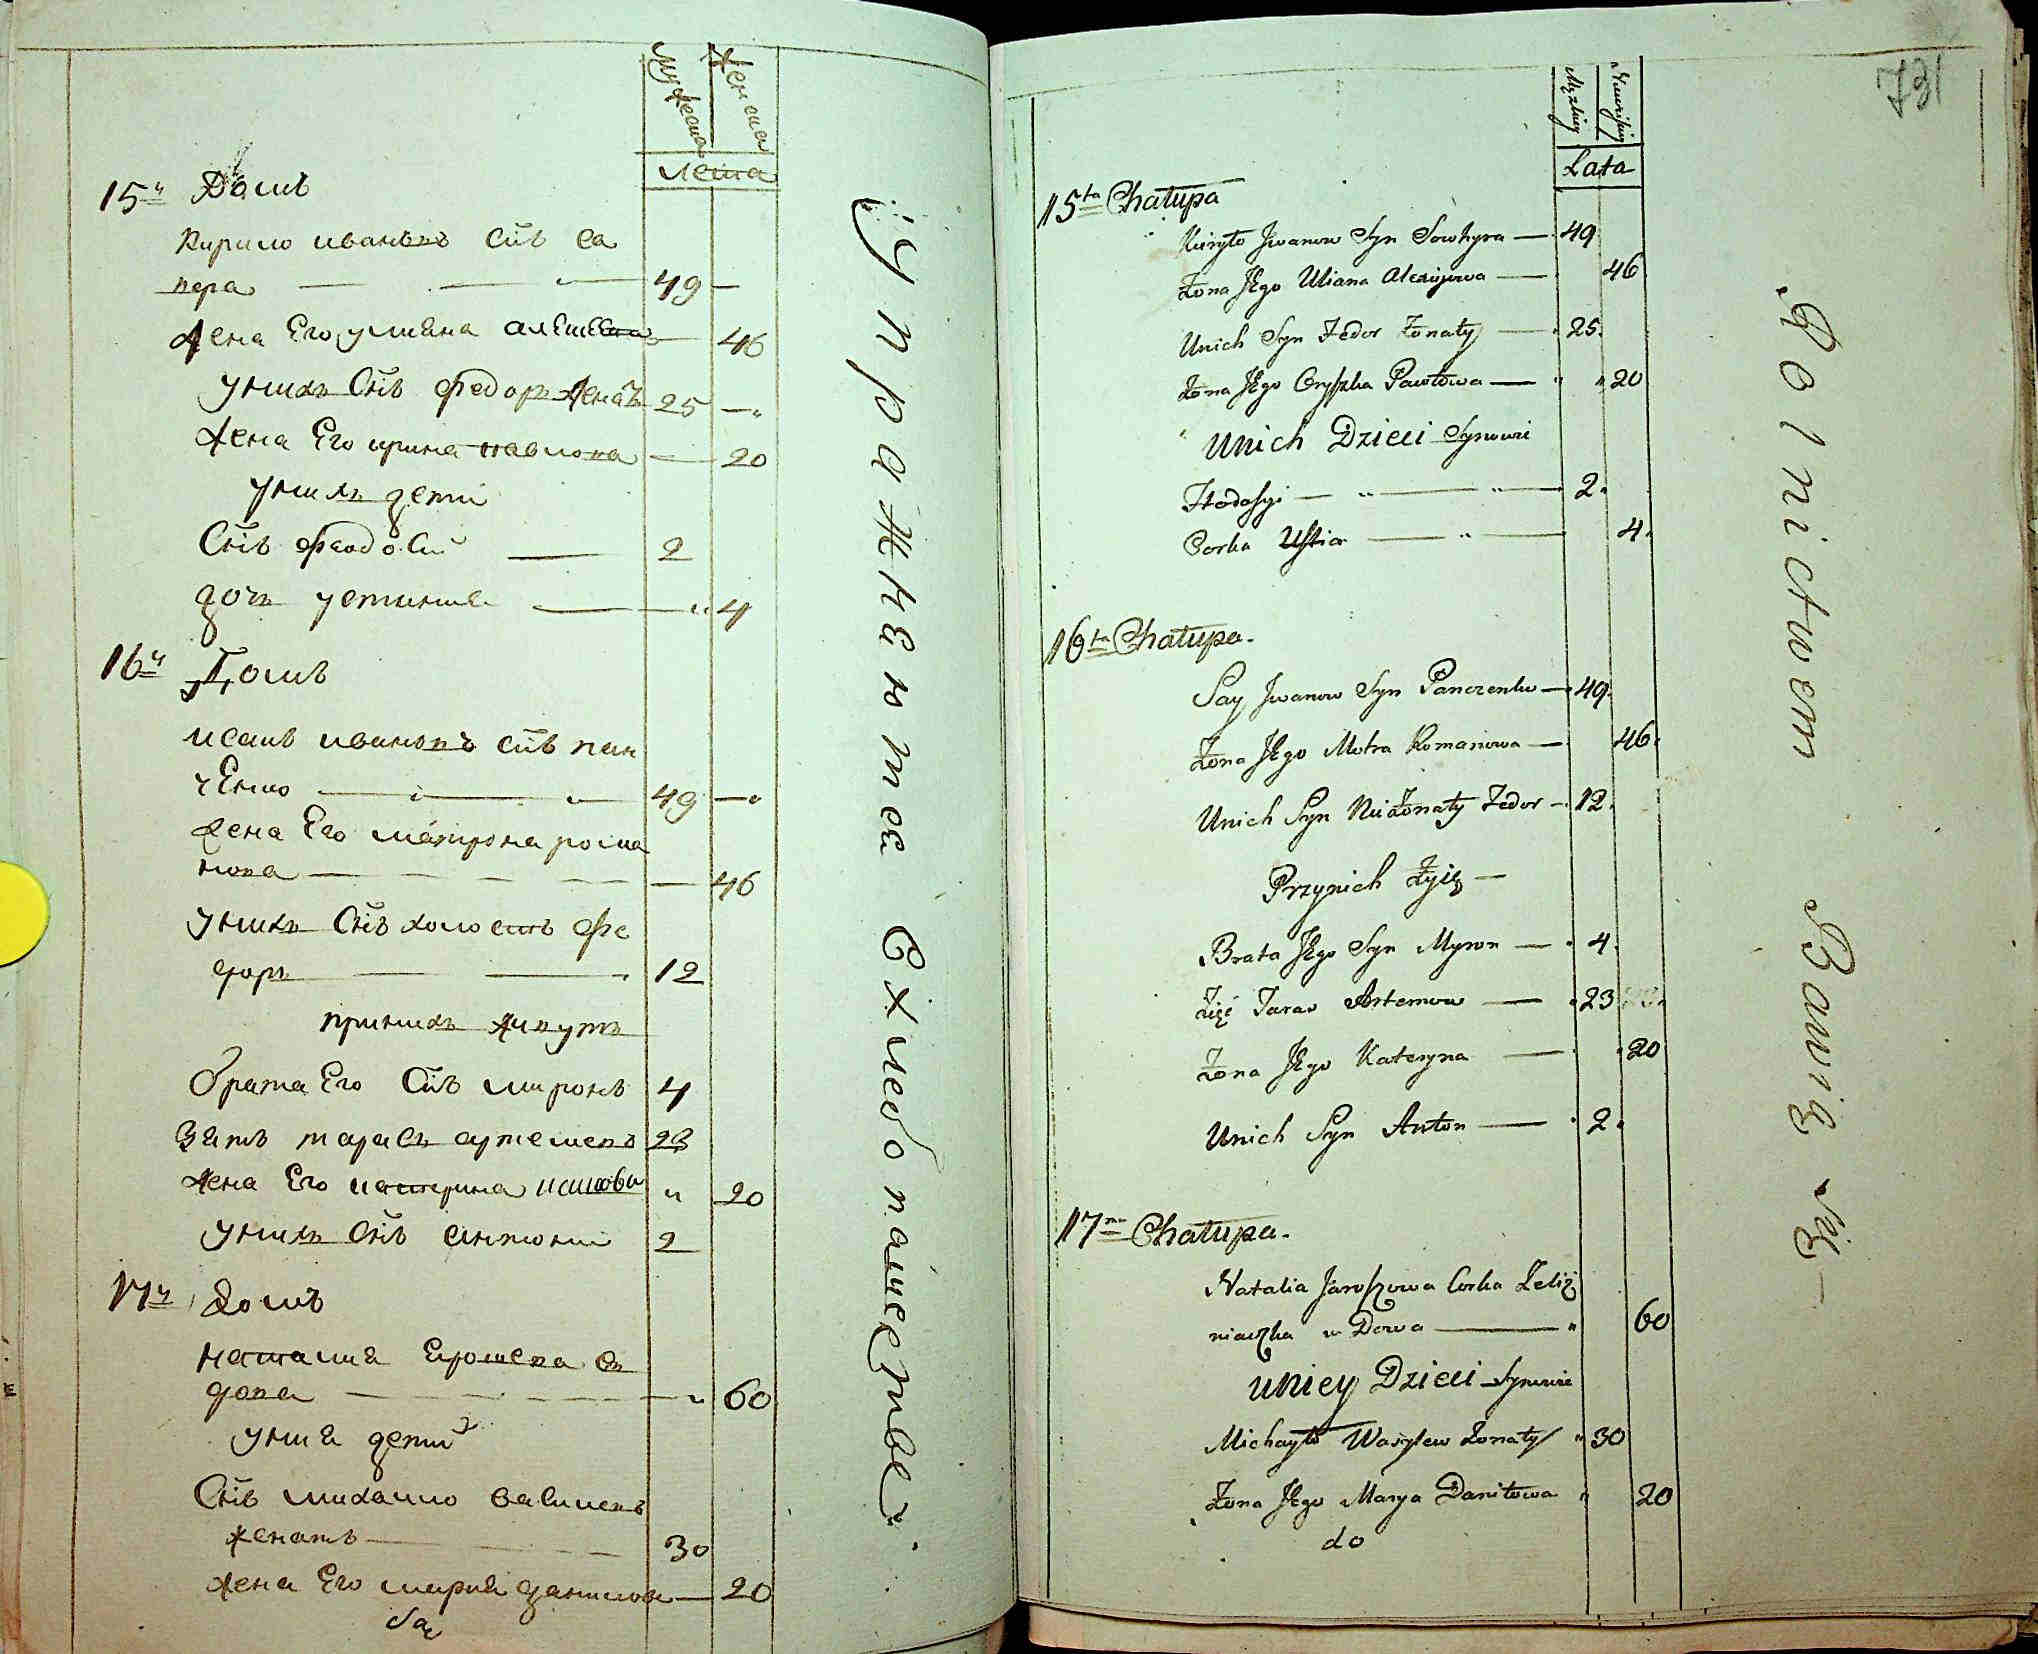 мужеска
женска
лета
15й Домъ
Кирило ивановъ сн҃ъ са
вера — 49 —
жена Его улияна алексеева — 46
у них сн҃ъ федоръ женатъ 25 —
жена Его ирина павлова — 20
у них дети
Сн҃ъ феодосий — 2
дочь устиния — 4
16й Домъ
исаия ивановъ сн҃ъ пан
чЕнко — 49 —
жена Его матрона рома
нова — 46
у них сн҃ъ холостъ фе
доръ — 12
при них живутъ
брата Его Сн҃ъ миронъ 4
Зять тарасъ артемовъ 23
жена Его катерина 20
у них сн҃ъ антоний 2
17й Домъ
наталия Ерошева в
дова — 60
у ния детий
Сн҃ъ михайло василевъ
женатъ — 30
жена Его мария данилова — 20
упражняются
в хлебопашестве.
731
Męzkiey
Niewieskiey
Lata
15ta Chałupa
Kiryło Jwanow Syn Sowhyra — 49
Żona Jego Uliana Alexijowa — 46
Unich Syn Fedor Żonaty — 25
Żona Jego Oryszka Pawłowa — 20
Unich Dzieci Synowie
Ftodosyi — 2
Corka Ustia — 4
16ta Chałupa
Say Jwanow Syn Panczenko — 49
Żona Jego Motra Romanowa — 46
Unich Syn Nieżonaty Fedor — 12
Przynich Żyią —
Brata Jego Syn Myron — 4
Zięć Taras Artemow — 23
Żona Jego Kateryna — 20
Unich Syn Anton — 2
17ma Chałupa
Natalia Jaroszowa Corka Zeliż
niaczka w Dowa — 60
uniey Dzieci Synowie
Michayło Wasylew Żonaty 30
Żona Jego Marya Daniłowa 20
do
Rolnictwem Bawią się —